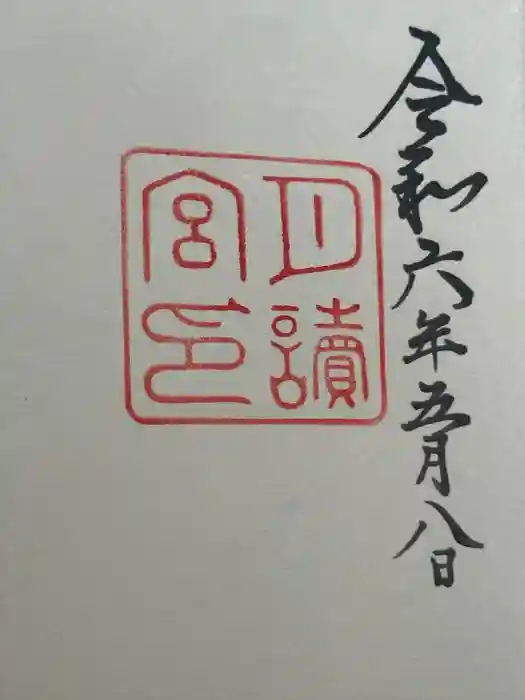 令和六年五月八日
月讀
宮印